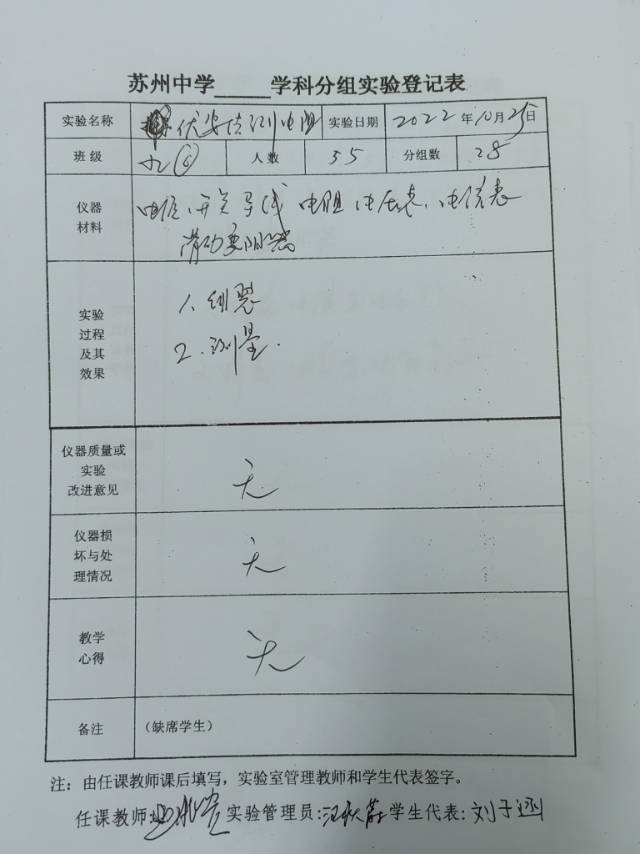 苏州中学_____学科分组实验登记表
实验名称 伏安法测电阻 实验日期 2022年10月25日
班级 九(6) 人数 55 分组数 28
仪器材料 电源、开关 导线 电阻 电压表、电流表
滑动变阻器
实验过程及其效果 1、组装
2、测量.
仪器质量或实验改进意见 无
仪器损坏与处理情况 无
教学心得 无
备注 (缺席学生)
注：由任课教师课后填写，实验室管理教师和学生代表签字。
任课教师: 实验管理员: 学生代表: 刘子涵